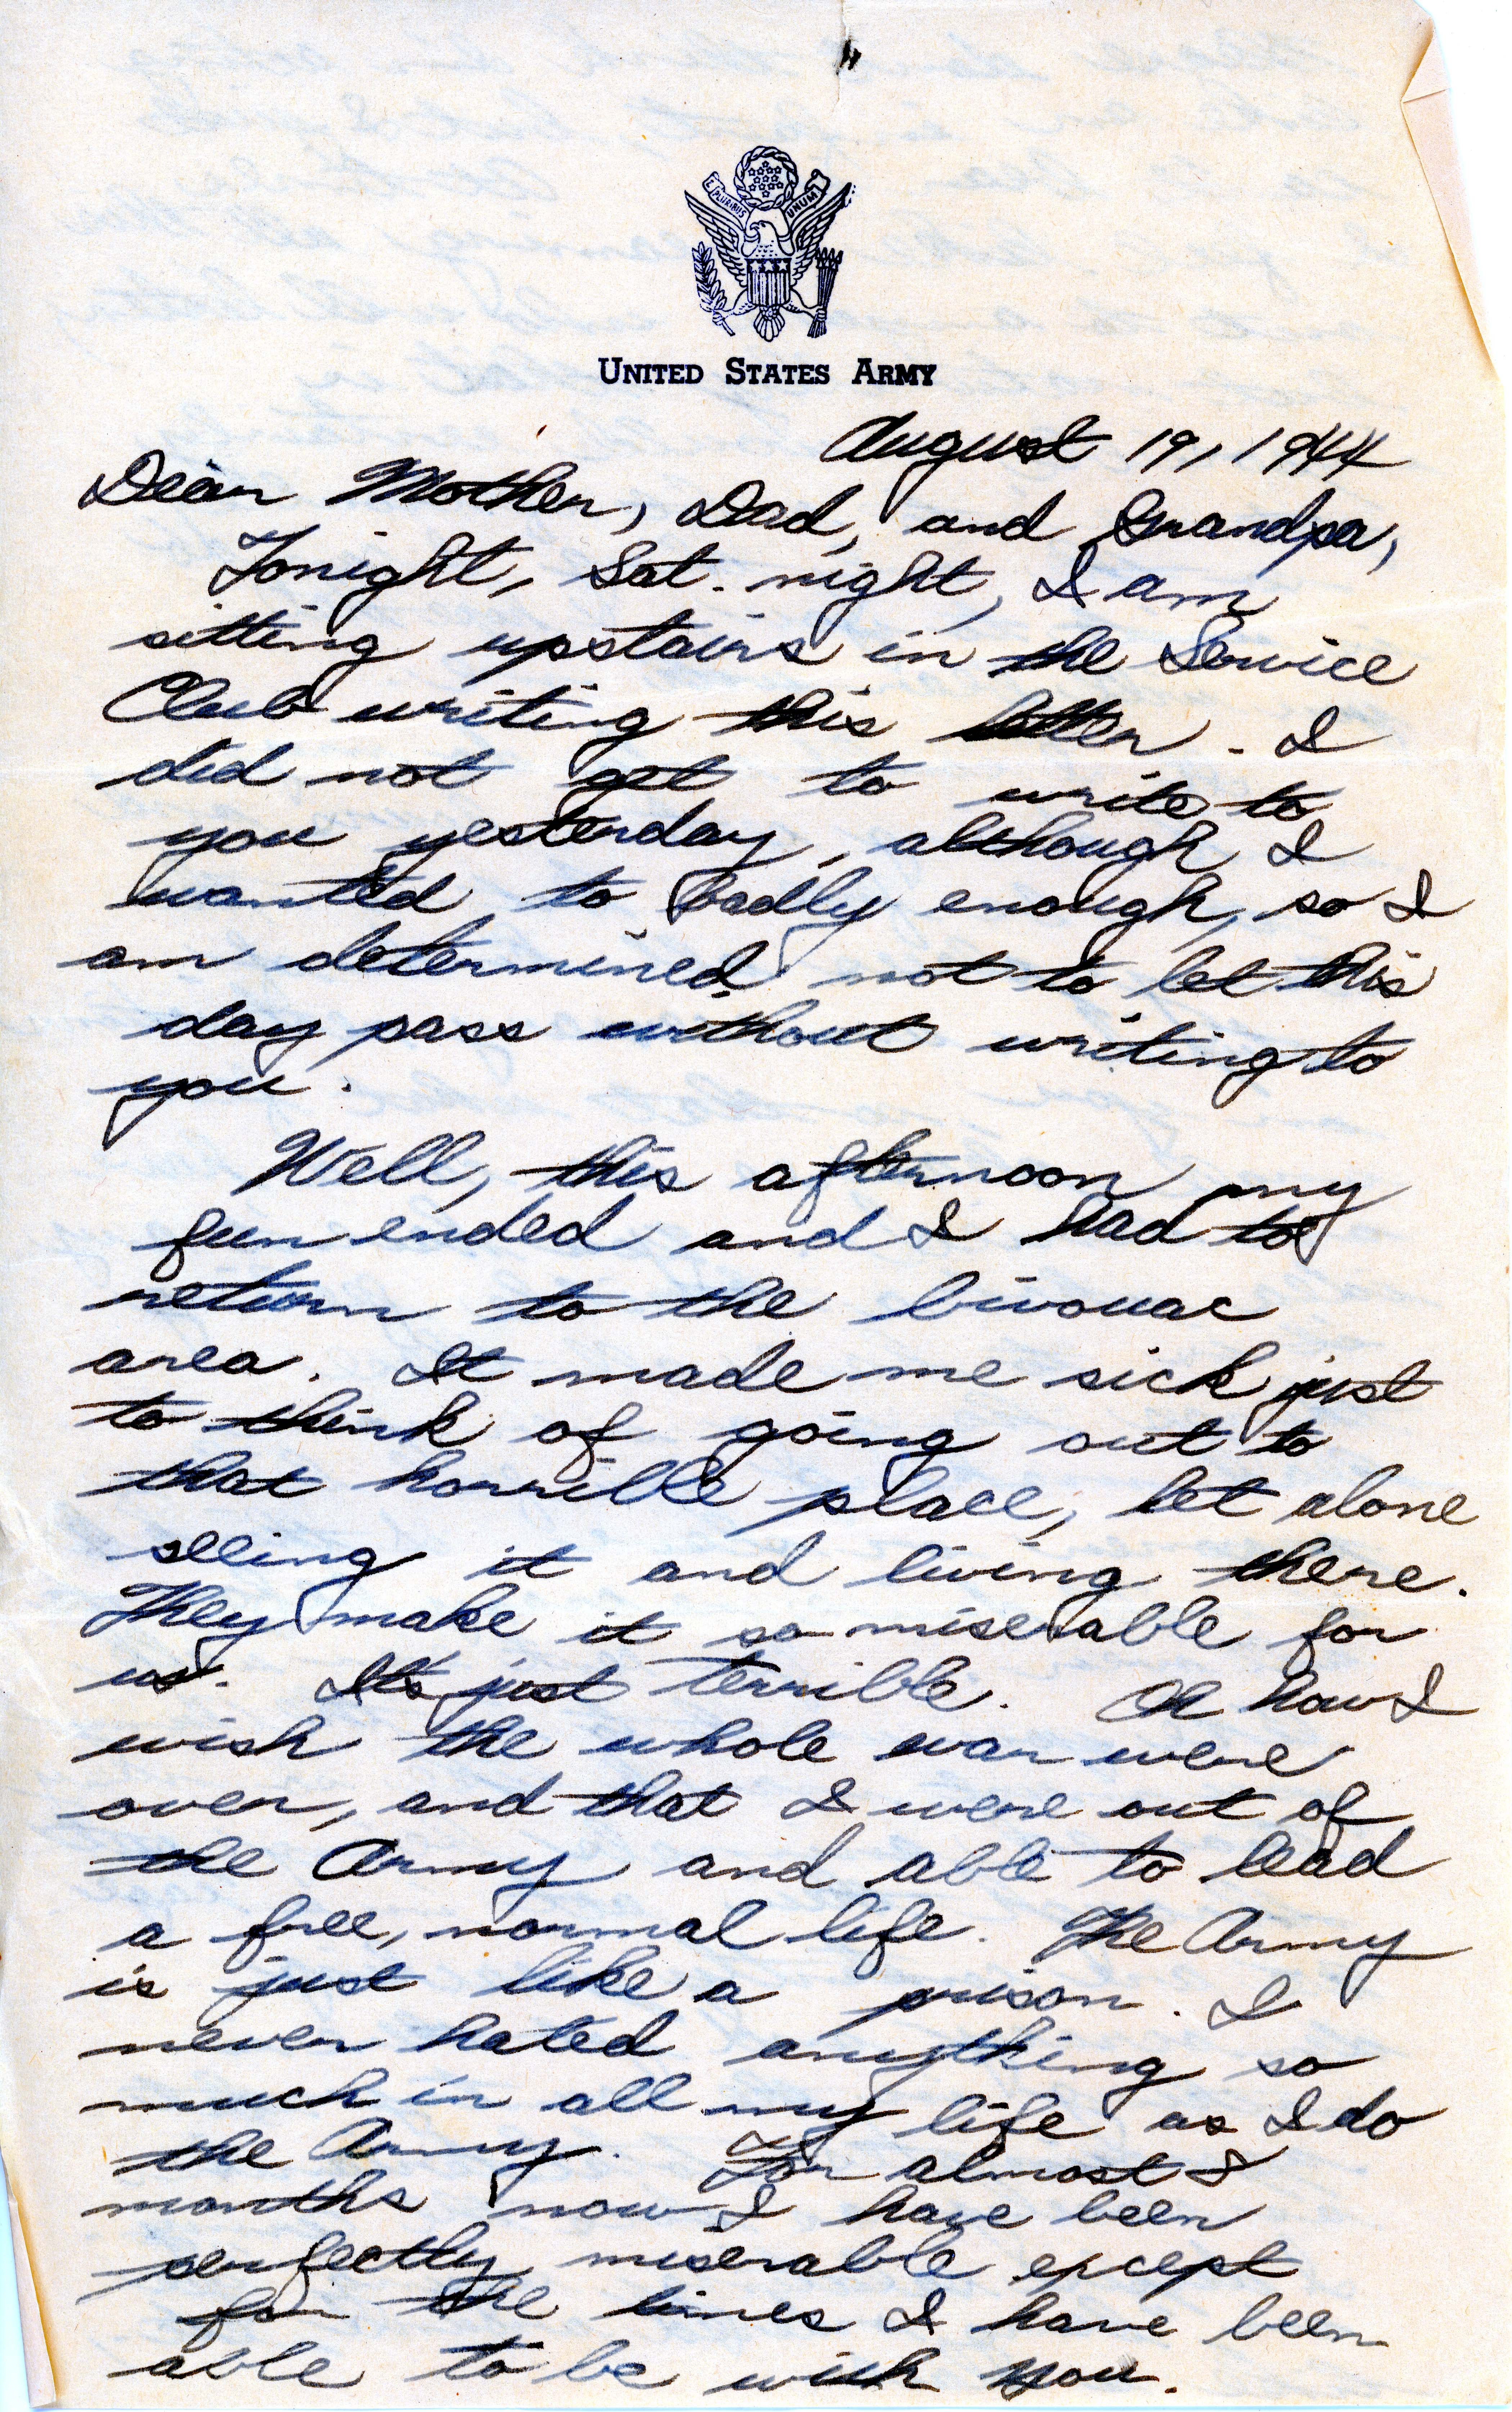 E PLURIBUS UNUM
UNITED STATES ARMY
August 19, 1944
Dear Mother, Dad, and Grandpa,
Tonight, Sat. night, I am
sitting upstairs in the Service
Club writing this letter. I
did not get to write to
you yesterday, although I
wanted to badly enough, so I
am determined not to let this
day pass without writing to
you.
Well, this afternoon my
fun ended and I had to
return to the bivouac
area. It made me sick just
to think of going out to
that horrible place, let alone
seeing it and living there.
They make it so miserable for
us. It's just terrible. Oh how I
wish the whole war were
over, and that I were out of
the Army and able to lead
a free, normal life. The Army
is just like a prison. I
never hated anything so
much in all my life as I do
the Army. For almost
months now I have been
perfectly miserable except
for the times I have been
able to be with you.